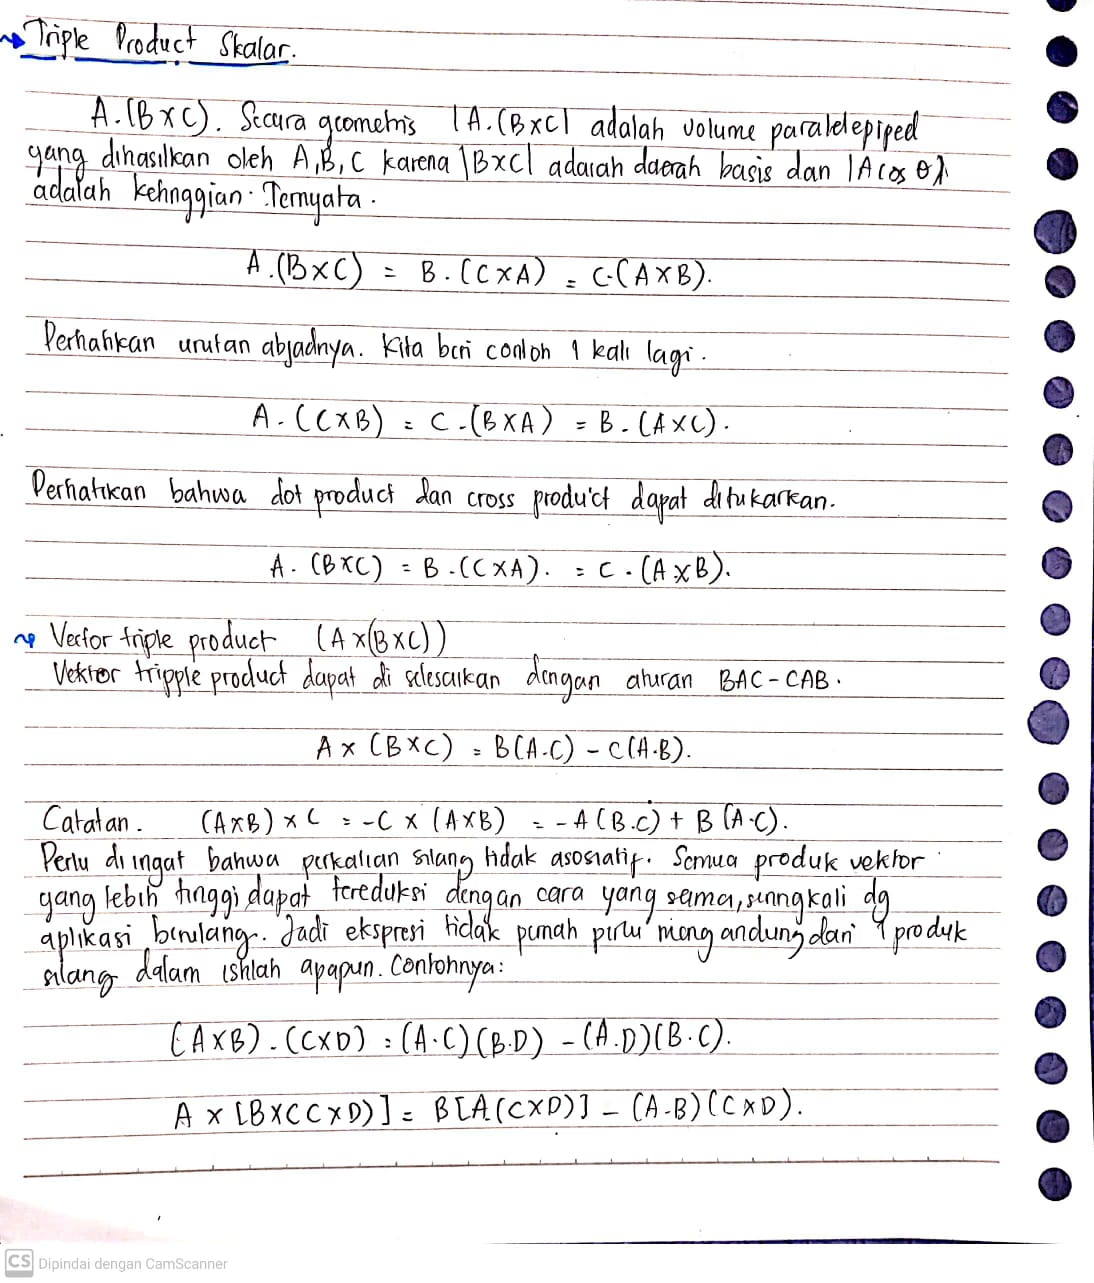 Triple Product Skalar.
A.(B×C). Secara geometris |A.(B×C| adalah volume paralelepiped
yang dihasilkan oleh A,B,C karena |B×C| adalah daerah basis dan |A cos θ|
adalah ketinggian. Ternyata.
A.(B×C) = B.(C×A) = C.(A×B).
Perhatikan urutan abjadnya. Kita beri contoh 1 kali lagi.
A.(C×B) = C.(B×A) = B.(A×C).
Perhatikan bahwa dot product dan cross product dapat ditukarkan.
A.(B×C) = B.(C×A). = C.(A×B).
Vector triple product (A×(B×C))
Vektor tripple product dapat di selesaikan dengan aturan BAC-CAB.
A×(B×C) = B(A.C) - C(A.B).
Catatan. (A×B)×C = -C×(A×B) = -A(B.C) + B(A.C).
Perlu di ingat bahwa perkalian silang tidak asosiatif. Semua produk vektor
yang lebih tinggi dapat tereduksi dengan cara yang sama, seringkali dg
aplikasi berulang. Jadi ekspresi tidak pernah perlu mengandung dari 1 produk
silang dalam istilah apapun. Contohnya:
(A×B).(C×D) = (A.C)(B.D) - (A.D)(B.C).
A×[B×(C×D)] = B[A(C×D)] - (A.B)(C×D).
CS Dipindai dengan CamScanner